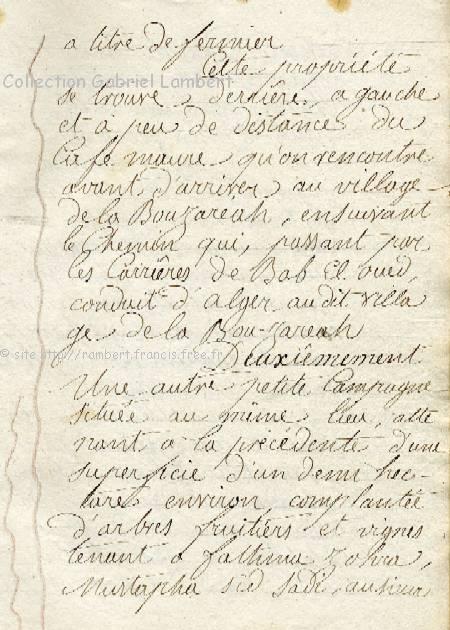 a titre de fermier
Collection Gabriel Lambert
Cette propriété
se trouve derrière, a gauche
et à peu de distance du
Café maure qu'on rencontre
avant d'arriver au village
de la Bouzareah, en suivant
le Chemin qui, passant par
les Carrières de Bab El oued,
conduit d'alger audit villa
ge de la Bou-zareah
© site http://rambert.francis.free.fr
Deuxièmement
Une autre petite Campagne
située au même lieu, atte
nant a la précédente d'une
superficie d'un demi hec
tare environ complantée
d'arbres fruitiers et vignes
tenant a fathma Zohra,
Mustapha sid sadi, au sieur